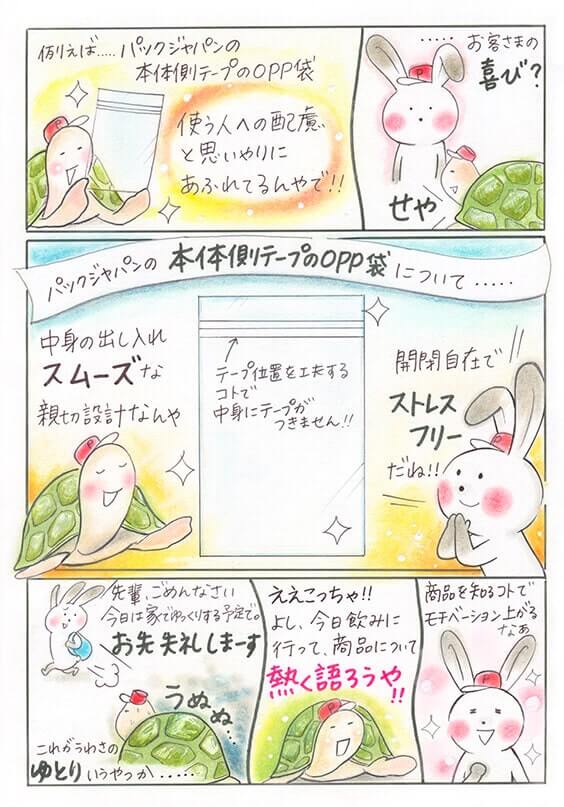 .....お客さまの
喜び?
せや
例えば.....パックジャパンの
本体側テープのOPP袋
使う人への配慮
と思いやりに
あふれてるんやで!!
パックジャパンの本体側テープのOPP袋について.....
開閉自在で
ストレス
フリー
だね!!
テープ位置を工夫する
コトで
中身にテープが
つきません!!
中身の出し入れ
スムーズな
親切設計なんや
商品を知るコトで
モチベーション上がる
なぁ
ええこっちゃ!!
よし、今日飲みに
行って、商品について
熱く語ろうや!!
先輩、ごめんなさい
今日は家でゆっくりする予定で。
お先失礼しまーす
うぬぬ..
これがうわさの
ゆとりいうやっか.....